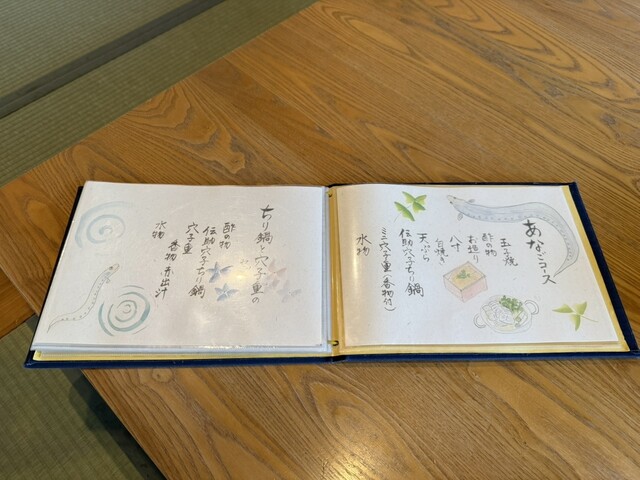 あなごコース
玉子焼
酢の物
お造り
八寸
白焼き
天ぷら
伝助穴子ちり鍋
ミニ穴子重(香物付)
水物
ちり鍋と穴子重の
酢の物
伝助穴子ちり鍋
穴子重
香物・赤出汁
水物